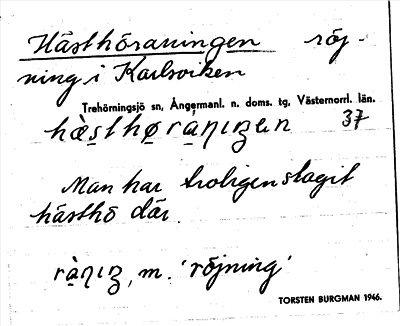 Hästhöraningen röj-
ning i Karlsviken
Trehörningsjö sn, Ångermanl. n. doms. tg, Västernorrl. län.
hæ̀sthøra̱ŋıŋen 37
Man har troligen slagit
hästhö där.
rà̱ŋıŋ, m. 'röjning'
TORSTEN BURGMAN 1946.